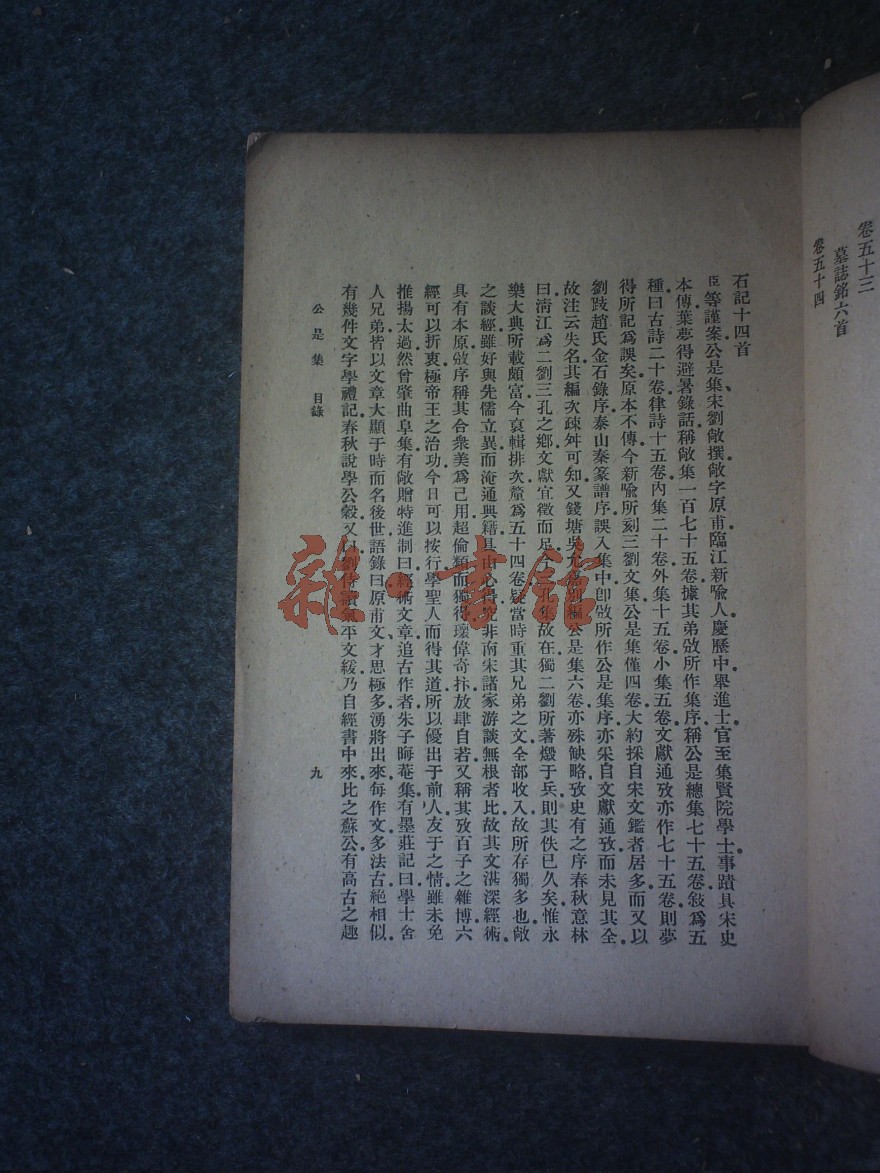 卷五十三
墓誌銘六首
卷五十四
石記十四首
臣等謹案公是集、宋劉敞撰、敞字原甫、臨江新喩人、慶曆中舉進士、官至集賢院學士、事蹟具宋史
本傳、葉夢得避暑錄話、稱敞集一百七十五卷、據其弟攽所作集序、稱公是總集七十五卷、敍爲五
種、曰古詩二十卷、律詩十五卷、內集二十卷、外集十五卷、小集五卷、文獻通攷亦作七十五卷、則夢
得所記爲誤矣、原本不傳、今新喩所刻三劉文集、公是集僅四卷、大約採自宋文鑑者居多、而又以
劉跂趙氏金石錄序、泰山秦篆譜序誤入集中、卽攽所作公是集序、亦采自文獻通攷、而未見其全、
故注云失名、其編次疎舛可知、又錢塘吳允嘉別編公是集六卷、亦殊缺略、攷史有之序春秋意林
曰、淸江爲二劉三孔之鄕、文獻宜徵而足、今 孔集故在、獨二劉所著燬于兵、則其佚已久矣、惟永
樂大典所載頗富、今裒輯排次、釐爲五十四卷、疑當時重其兄弟之文、全部收入、故所存獨多也、敞
之談經、雖好與先儒立異、而淹通典籍、具由心得、究非南宋諸家游談無根者比、故其文湛深經術、
具有本原、攽序稱其合衆美爲己用、超倫類而獨得、瓌偉奇抃、放肆自若、又稱其攷百子之雜博、六
經可以折衷、極帝王之治功、今日可以按行、學聖人而得其道、所以優出于前人、友于之情、雖未免
推揚太過、然曾肇曲阜集、有敞贈特進制曰、經術文章、追古作者、朱子晦菴集、有墨莊記曰、學士舍
人兄弟、皆以文章大顯于時、而名後世、語錄曰、原甫文、才思極多、湧將出來、每作文、多法古、絶相似、
有幾件文字學禮記、春秋說學公穀、又曰、劉侍讀氣平文緩、乃自經書中來、比之蘇公、有高古之趣
公是集 目錄
九
雜·書館